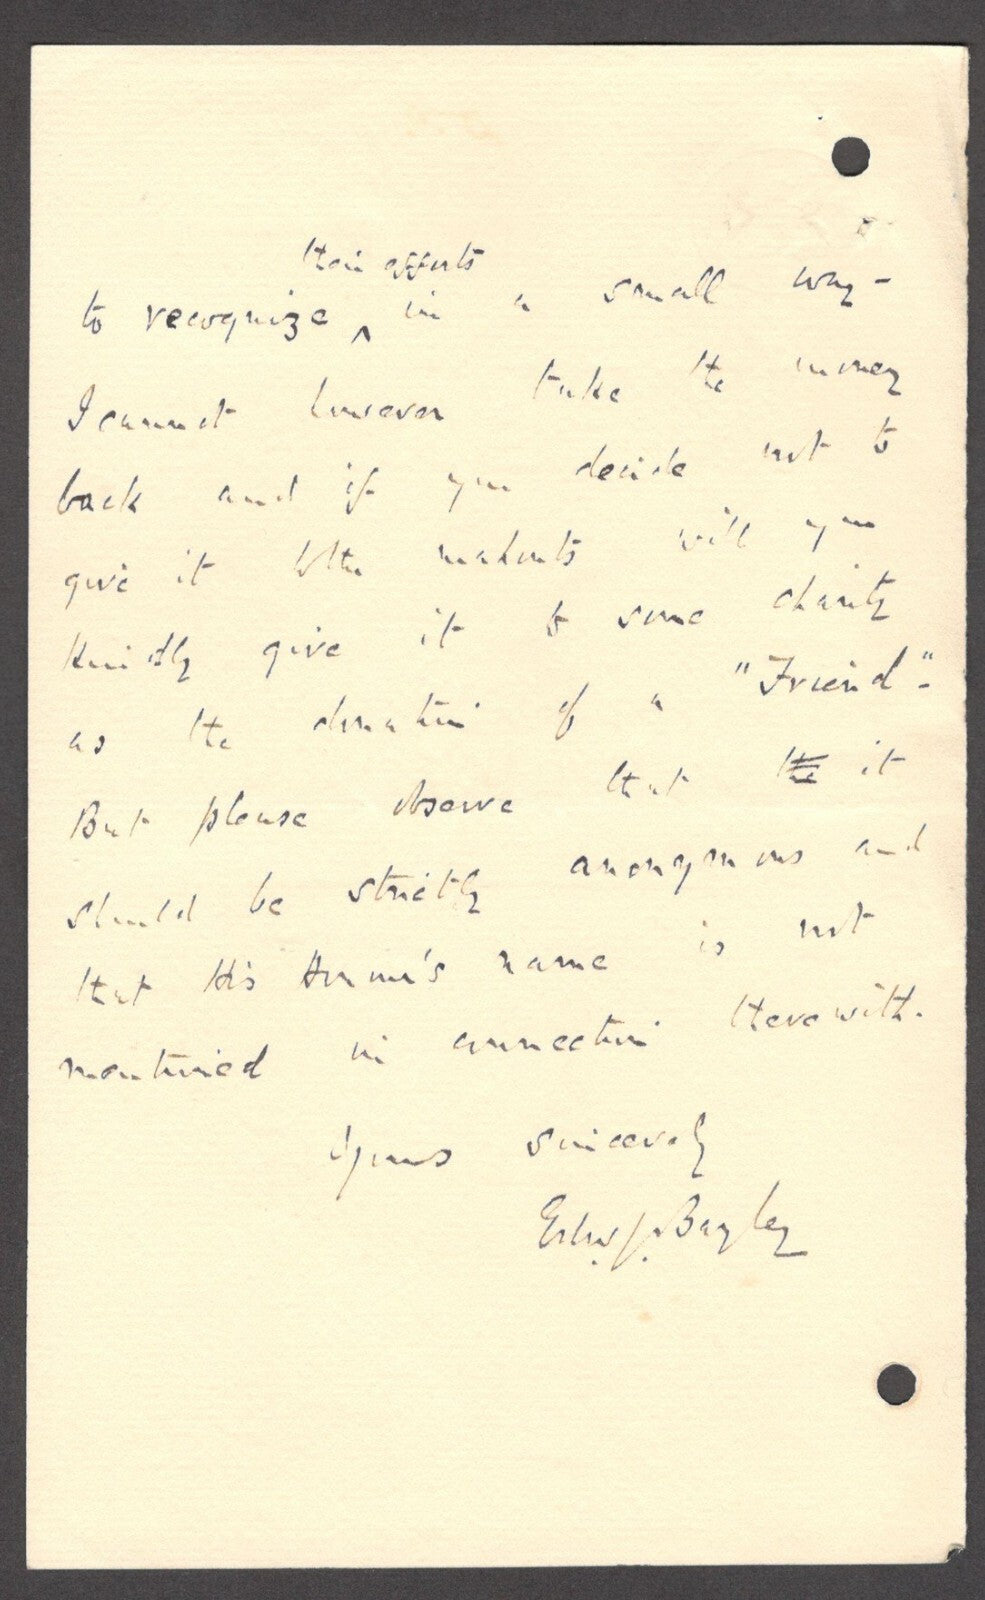 their efforts
to recognize ^ in a small way -
I cannot however take the money
back and if you decide not to
give it to the mahouts will you
kindly give it to some charity
as the donation of a "Friend".
But please observe that the it
should be strictly anonymous and
that His Honour's name is not
mentioned in connection therewith.
Yours sincerely
Edw. J. Bayley